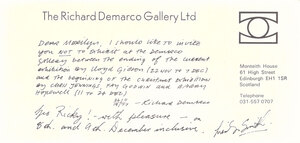 The Richard Demarco Gallery Ltd
I should like to invite
you NOT to exhibit at the Demarco
Gallery between the ending of the current
exhibition by Lloyd Gibson (22 Nov to 7 Dec)
and the beginning of the Christmas exhibition
by Chris Jennings, Fay Godwin and
(11 to 24 Dec)
Richard Demarco
Yes Ricky: - with pleasure - on
8th. and 9th December inclusive.
Monteith House
61 High Street
Edinburgh EH1 1SR
Scotland
Telephone
031 557 0707